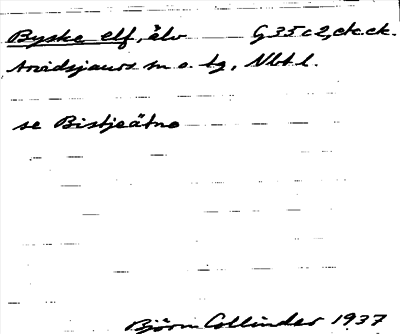 Byske elf, älv G 35 c 2, etc. etc.
Arvidsjaurs sn o. tg, Nbt l.
se Bistjeätno
Björn Collinder 1937